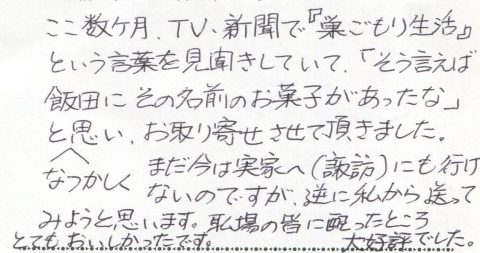 ここ数ケ月、TV、新聞で『巣ごもり生活』
という言葉を見聞きしていて、「そう言えば
飯田にその名前のお菓子があったな」
と思い、お取り寄せさせて頂きました。
なつかしく
まだ今は実家へ(諏訪)にも行け
ないのですが、逆に私から送って
みようと思います。職場の皆に配ったところ
とてもおいしかったです。
大好評でした。